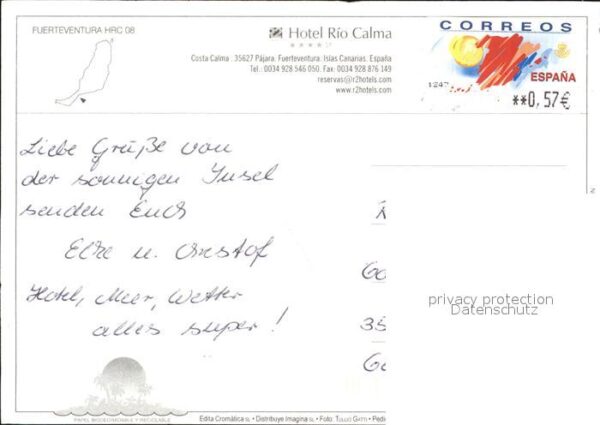 FUERTEVENTURA HRC 08
Hotel Río Calma
Costa Calma · 35627 Pájara. Fuerteventura. Islas Canarias. España
Tel.: 0034 928 546 050. Fax: 0034 928 876 149
reservas@r2hotels.com
www.r2hotels.com
CORREOS
ESPAÑA
1247
**0,57€
Liebe Grüße von
der sonnigen Insel
senden Euch
Elke u. Christof
Hotel, Meer, Wetter
alles super!
35
privacy protection
Datenschutz
PAPEL BIODEGRADABLE Y RECICLABLE
Edita Cromática SL • Distribuye Imagina SL • Foto: TULLIO GATTI • Pedi